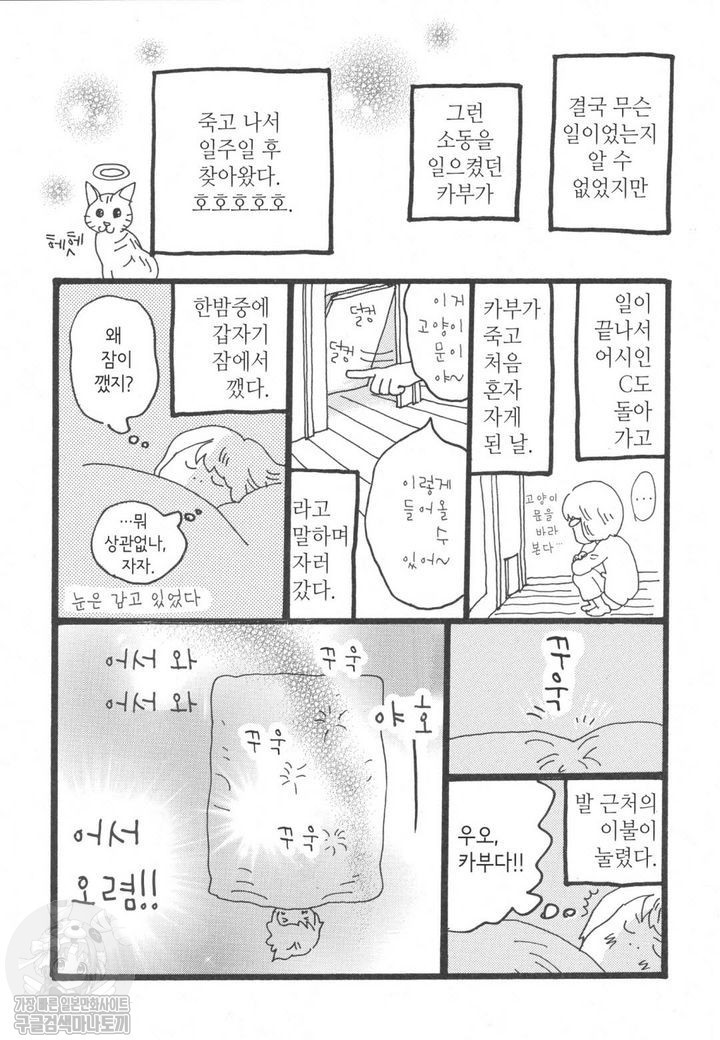 결국 무슨
일이었는지
알 수
없었지만
그런
소동을
일으켰던
카부가
죽고 나서
일주일 후
찾아왔다.
호호호호호.
헤헷
일이
끝나서
어시인
C도
돌아
가고
…
고양이
문을
바라
본다…
카부가
죽고
처음
혼자
자게
된 날.
이거
고양이
문이
야~
덜컹
덜컹
이렇게
들어올
수
있어~
라고
말하며
자러
갔다.
한밤중에
갑자기
잠에서
깼다.
왜
잠이
깼지?
…뭐
상관없나,
자자.
눈은 감고 있었다
꾸욱
발 근처의
이불이
눌렸다.
우오,
카부다!!
꾸욱
꾸욱
꾸욱
어서 와
어서 와
가장 빠른 일본만화사이트
구글검색마나토끼